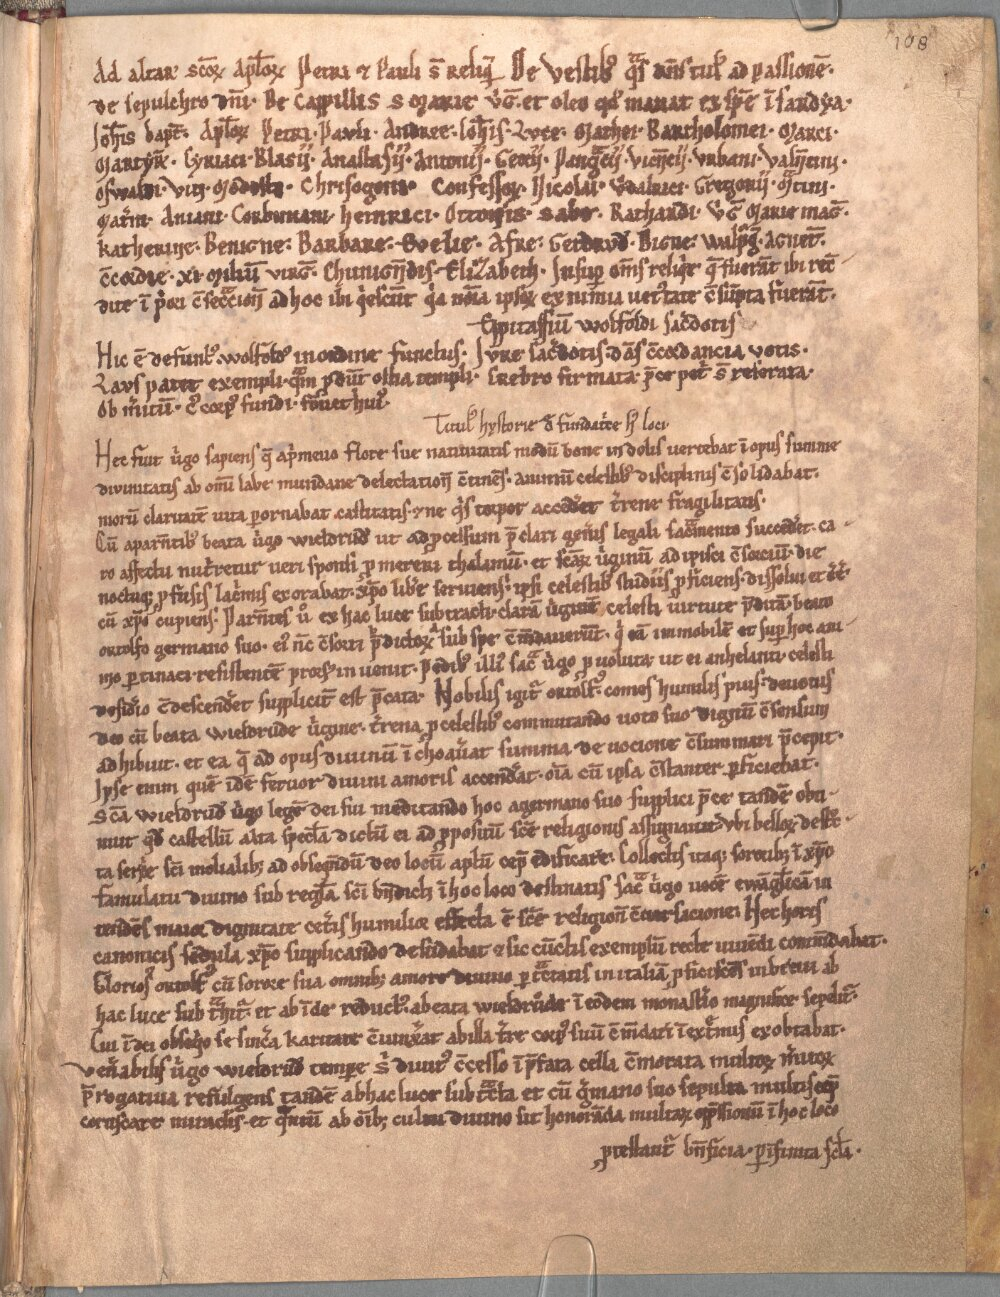 108
Ad altar' scōꝝ Apl'oꝝ Petri ⁊ Pauli s̄ reliq̄ De Vestib' q̄s dn̄s tul' ad passionē·
de sepulchro dn̄i· De Cappillis S Marie v̄g̅· et oleo qd' manat ex
Ioh̄is bapt̄· Apl'oꝝ Petri· Pavli· Andree· Ioh̄is· Lvce· Mathei· Bartholomei· Marci·
Martyrū· Cyriaci· Blasij· Anastasij· Antonij· Georij· Vrbani·
Oswaldi· Viti· Modesti· Chrisogoni· Confessoꝝ· Nicolai· Vdalrici· Gregorij· M̄tini·
Aniani· Corbiniani· Heinrici· Ottonis· Sabe· Rathardi· v̄g̅ Marie mag̅·
Katherine· Benigne· Barbare· Afre· Gerdrvd'· Digne· Walp̄g̅· Agnet̄·
c̄cordie· xi· miliū virg̅· Chunigūdis· Elizabeth· Insup̄ om̄s reliq̄e q̄ fuer̄t ibi rec̄
dite ī p̄ori c̄sec̄cion̄ ad hoc ibi q̄escūt q̄a nōīa ipsoꝝ ex nimia uetustate c̄sūpta fuer̄t·
Epitaffiū Wolfoldi sac̄dotis
Hic ē defunct' wolfold' in ordine functus· Ivre sac̄dotis· dās c̄cordancia votis·
Lavs patet exempli· q̄m p̄dūt ostia templi· Crebro firmata· p̄ce pet̄ s̄ referata·
Ob m̄itū· c' corp' fundi· fouet hui'·
Titul' hystorie d' fundat̄ce h' loci·
Hec fuit v̄go sapiens q̄ a p̄meuo flore sue natiuitatis modū bone indolis vertebat ī opus summe
diuinitatis ab om̄i labe mundane delectation̄ c̄tinēs· animū celestib' disciplinis c̄solidabat·
morū claritatē uita p̄ornabat castitatis· ⁊ ne q̄s torpor acced'et t̄rene fragilitatis·
Cū a par̄ntib' beata v̄go wieldrud' ut ad p̄celsum p̄clari gen̄is legali sac̄mento succed'et· ca
ro affectu nut̄retur ueri sponsi p̄mereri thalamū· et scāꝝ v̄ginū adipisci c̄sorciū· die
noctuq; p̄fusis lac̄mis exorabat· xp̄o lib'e seruiens· ipsi celestib' studijs p̄ficiens· dissolui et ēē
cū xp̄o cupiens· Par̄ntes u' ex hac luce subtracti· clarā v̄ginē celesti uirtute p̄ditā· beato
ortolfo germano suo· ei' n̄c c̄sorti p̄dictoꝝ sub spe c̄mdauerūt· q̄ eā immobilē et sup̄ hoc ani
mo p̄tinaci resistentē prorsus inuenit· Pedib' illi' sac̄ v̄go p̄uoluta· ut ei anhelanti celesti
desid̄io c̄descend'et suppliciter est p̄cata· Nobilis igit̄ ortolf' comes humilis pius· deuotus
deo cū beata wieldrude v̄gine· t̄rena p̄ celestib' commutando uoto suo dignū c̄sensum
adhibuit· et ea q̄ ad opus diuinū īchoau̅at summa deuocione c̄summari p̄cepit·
Ipse enim quē idē feruor diuini amoris accend'at· oīa cū ipsa c̄stanter p̄ficiebat·
Scā wieldrud' v̄go legē dei sui meditando hoc a germano suo supplici p̄ce tandē obti
nuit qd' castellū alta spec̄la dictū ei ad p̄positū scē religionis assignauit vbi belloꝝ dest̄
ta serie sc̄imolialib; ad obseq̄ndū deo locū aptū cep̄ edificare· Collectis itaq; sororib; ī xp̄o
famulatu diuino sub reg̅la sc̄i bn̄dicti ī hoc loco destinatis sac̄ v̄go uocē ewāgl̄icā in
tendēs maior̄ dignitate cet̄is humilior̄ effecta ē scē religion̄ c̄uersacione· Hec horis
canonicis sedula xp̄o supplicando desudabat ⁊ sic cūctis exemplū recte uiuēdi comēdabat·
Glorios' ortolf' cū sorore sua omnib; amore diuino p̄t̄ctatis in italiā p̄ficiscēs in breui ab
hac luce subt̄hit̄· et ab īde reduct' a beata wieldrude ī eodem monast̄io magnifice sepelit̄·
Cui ī dei obseq̄o se sinc̄a karitate c̄iunx̄at ab illa t̄re corp' suū c̄mdari ī ext̄mis exobtabat·
Ven̄abilis v̄go wieldrud' tempe s̄ diuit' c̄cesso ī p̄fata cella c̄morata multoꝝ m̄itoꝝ
p̄rogatiua refulgens tandē ab hac luce subt̄cta et cū g̅mano suo sepulta multis cep̄
coruscare miraclis· et q̄ntū ab oīb; cultui diuino sit honor̄nda multaꝝ opp̄ssionū ī hoc loco
prestant̄ bn̄ficia· p̄ infinita sc̄la·